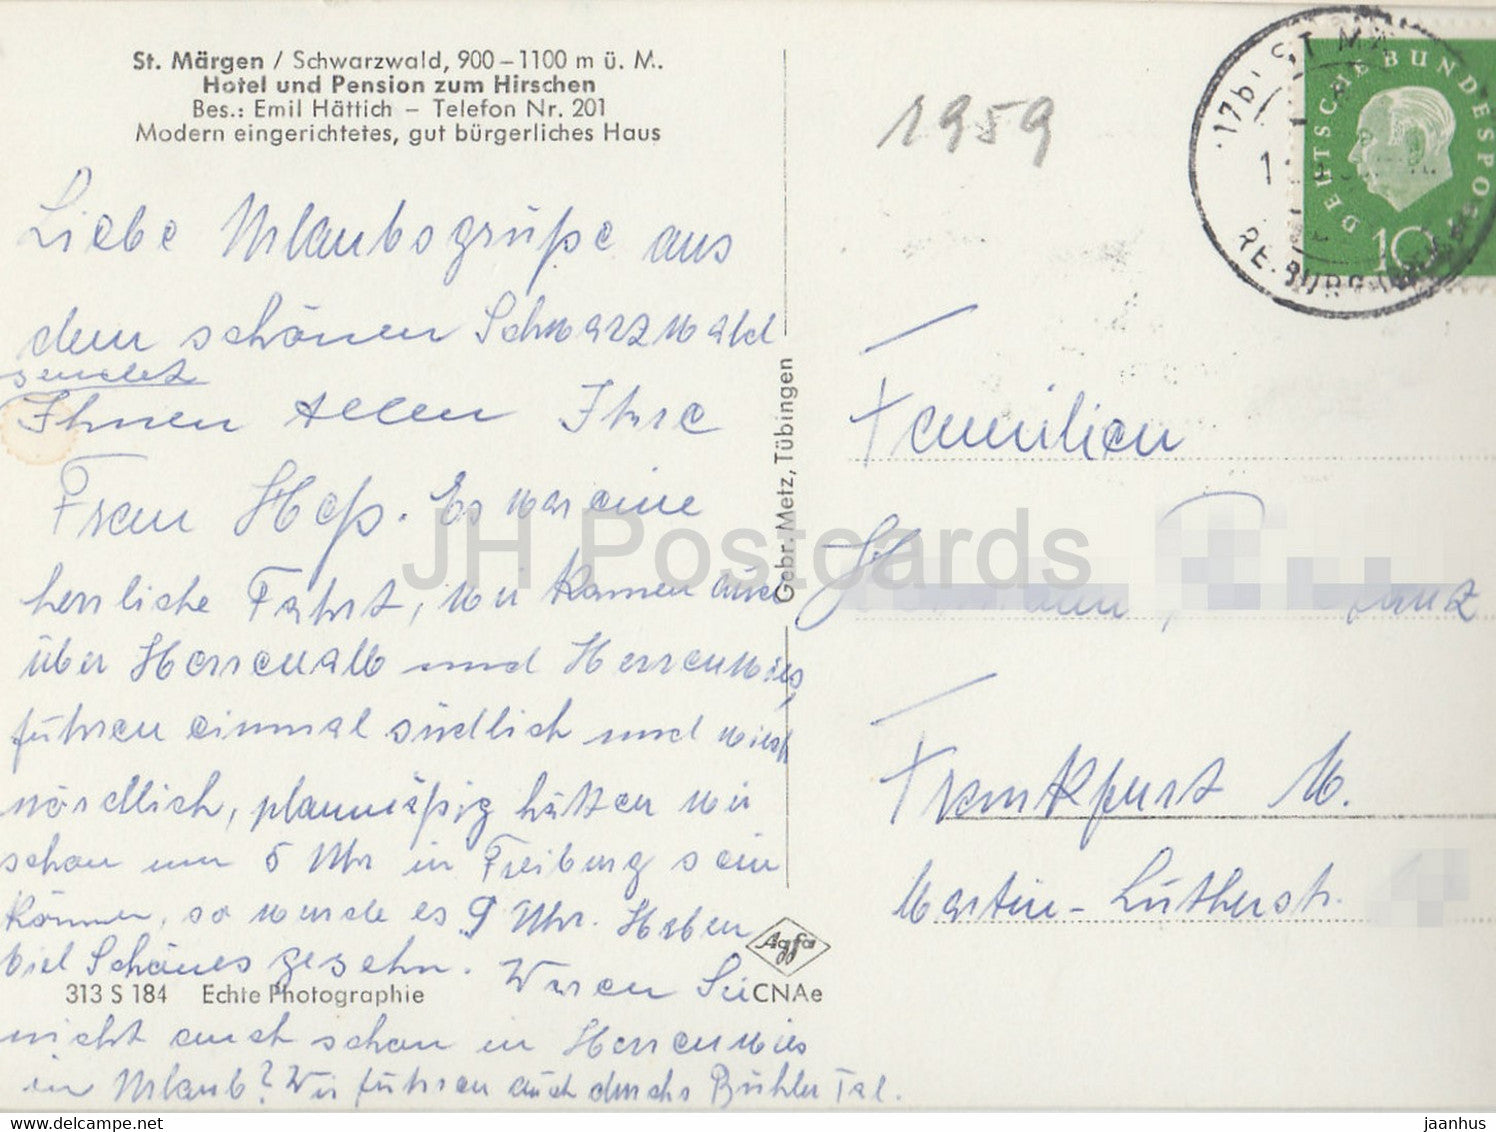 St. Märgen / Schwarzwald, 900–1100 m ü. M.
Hotel und Pension zum Hirschen
Bes.: Emil Hättich – Telefon Nr. 201
Modern eingerichtetes, gut bürgerliches Haus
Liebe Urlaubsgrüße aus
dem schönen Schwarzwald
sendet
Ihnen Allen Ihre
Frau Heß. Es war eine
herrliche Fahrt, wir kamen auch
über Herrenalb und Herrenwies,
fuhren einmal südlich und
nördlich, planmäßig hätten wir
schon um 5 Uhr in Freiburg sein
können, so wurde es 9 Uhr. Haben
viel Schönes gesehn. Waren Sie
nicht auch schon in Herrenwies
in Urlaub? Wir fuhren auch durchs Bühler Tal.
313 S 184 Echte Photographie
Agfa
CNAe
Gebr. Metz, Tübingen
1959
17b ST. MÄ
DEUTSCHE BUNDESPOST
10
Familien
Frankfurt M.
Martin-Lutherstr.
JH Postcards
www.delcampe.net
jaanhus